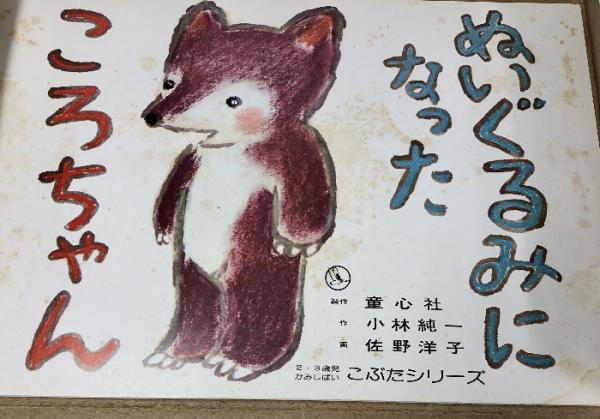 ぬいぐるみに
なった
ころちゃん
製作 童心社
作 小林純一
画 佐野洋子
2・3歳児
かみしばい こぶたシリーズ